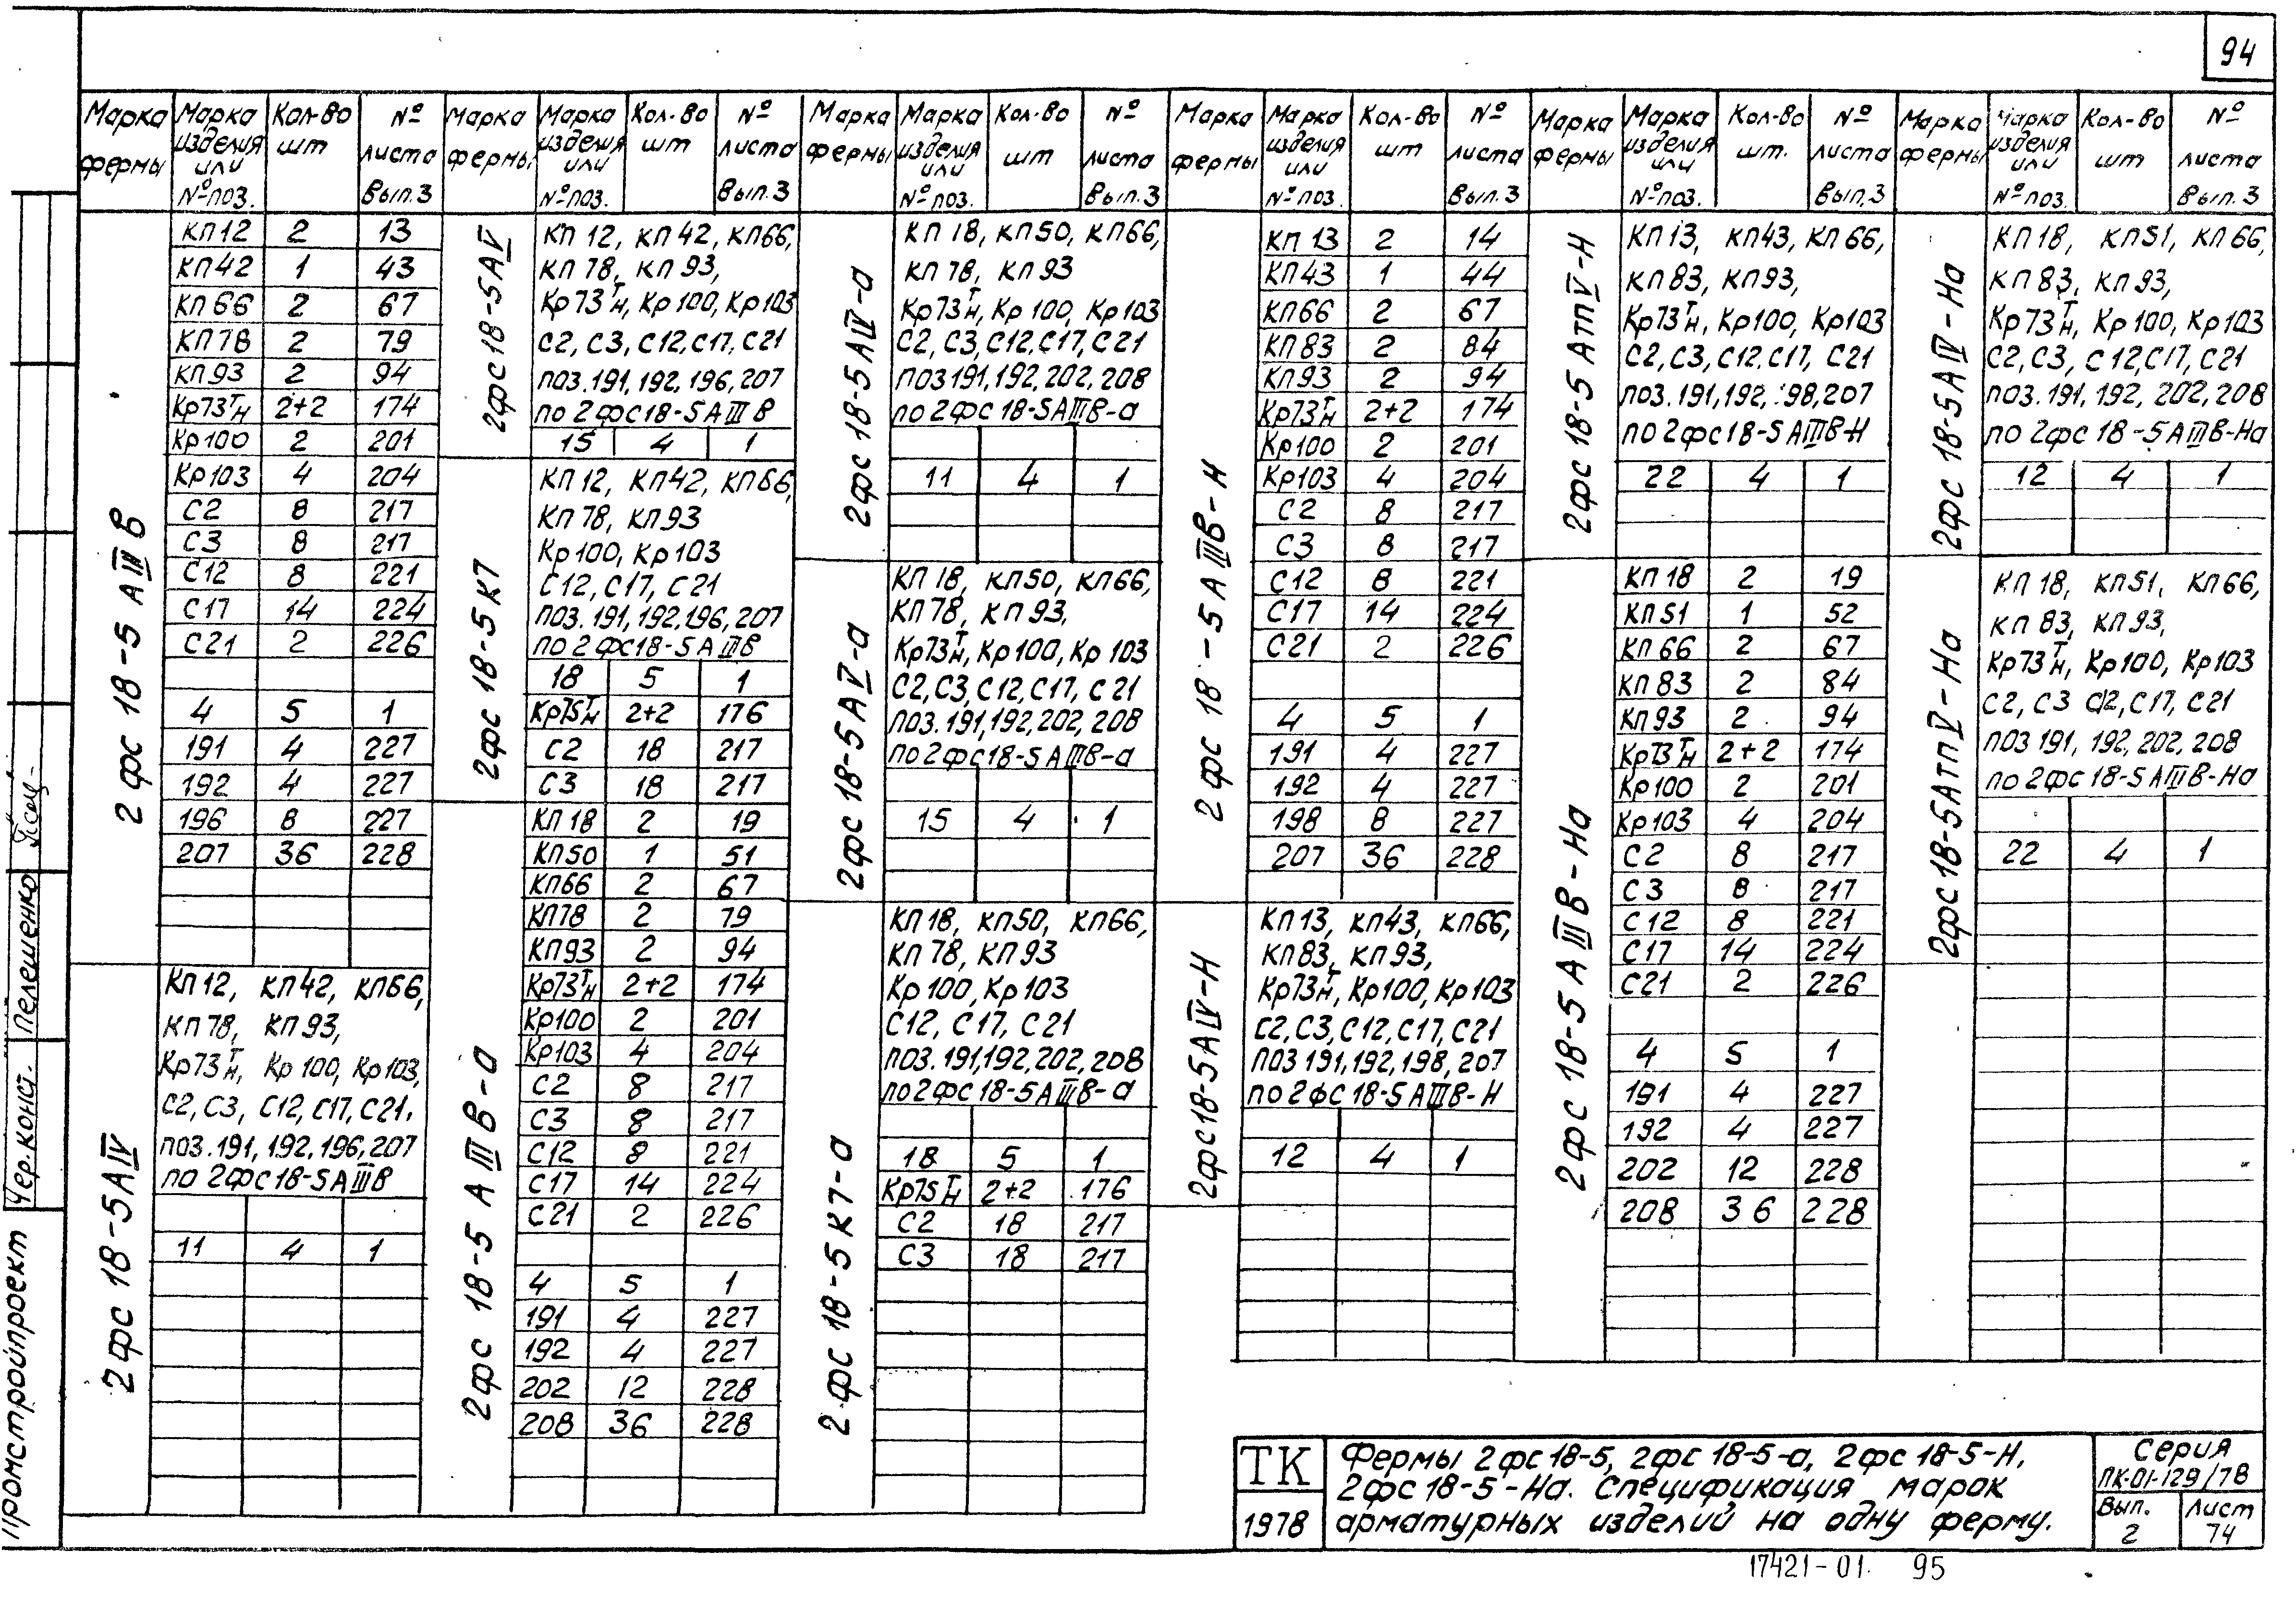 94
Марка фермы | Марка изделия или № поз. | Кол-во шт | № листа Вып. 3
2фс 18-5 АIIIВ
КП12 2 13
КП42 1 43
КП66 2 67
КП78 2 79
КП93 2 94
Кр73Т/Н 2+2 174
Кр100 2 201
Кр103 4 204
С2 8 217
С3 8 217
С12 8 221
С17 14 224
С21 2 226
4 5 1
191 4 227
192 4 227
196 8 227
207 36 228
2фс 18-5АIV
КП12, КП42, КП66,
КП78, КП93,
Кр73Т/Н, Кр100, Кр103,
С2, С3, С12, С17, С21.
поз. 191, 192, 196, 207
по 2фс18-5АIIIВ
11 4 1
Марка фермы | Марка изделия или № поз. | Кол-во шт | № листа Вып. 3
2фс 18-5АV
КП12, КП42, КП66,
КП78, КП93,
Кр73Т/Н, Кр100, Кр103
С2, С3, С12, С17, С21
поз. 191, 192, 196, 207
по 2фс18-5АIIIВ
15 4 1
2фс 18-5К7
КП12, КП42, КП66,
КП78, КП93
Кр100, Кр103
С12, С17, С21
поз. 191, 192, 196, 207
по 2фс18-5АIIIВ
18 5 1
Кр75Т/Н 2+2 176
С2 18 217
С3 18 217
2фс 18-5 АIIIВ-а
КП18 2 19
КП50 1 51
КП66 2 67
КП78 2 79
КП93 2 94
Кр73Т/Н 2+2 174
Кр100 2 201
Кр103 4 204
С2 8 217
С3 8 217
С12 8 221
С17 14 224
С21 2 226
4 5 1
191 4 227
192 4 227
202 12 228
208 36 228
Марка фермы | Марка изделия или № поз. | Кол-во шт | № листа Вып. 3
2фс 18-5АIV-а
КП18, КП50, КП66,
КП78, КП93
Кр73Т/Н, Кр100, Кр103
С2, С3, С12, С17, С21
поз 191, 192, 202, 208
по 2фс 18-5АIIIВ-а
11 4 1
2фс 18-5АV-а
КП18, КП50, КП66,
КП78, КП93,
Кр73Т/Н, Кр100, Кр103
С2, С3, С12, С17, С21
поз. 191, 192, 202, 208
по 2фс18-5АIIIВ-а
15 4 1
2фс 18-5К7-а
КП18, КП50, КП66,
КП78, КП93
Кр100, Кр103
С12, С17, С21
поз. 191, 192, 202, 208
по 2фс 18-5АIIIВ-а
18 5 1
Кр75Т/Н 2+2 176
С2 18 217
С3 18 217
Марка фермы | Марка изделия или № поз. | Кол-во шт | № листа Вып. 3
2фс 18-5АIIIВ-Н
КП13 2 14
КП43 1 44
КП66 2 67
КП83 2 84
КП93 2 94
Кр73Т/Н 2+2 174
Кр100 2 201
Кр103 4 204
С2 8 217
С3 8 217
С12 8 221
С17 14 224
С21 2 226
4 5 1
191 4 227
192 4 227
198 8 227
207 36 228
2фс18-5АIV-Н
КП13, КП43, КП66,
КП83, КП93,
Кр73Т/Н, Кр100, Кр103
С2, С3, С12, С17, С21
поз 191, 192, 198, 207
по 2фс 18-5АIIIВ-Н
12 4 1
Марка фермы | Марка изделия или № поз. | Кол-во шт. | № листа Вып. 3
2фс 18-5 АтпV-Н
КП13, КП43, КП66,
КП83, КП93,
Кр73Т/Н, Кр100, Кр103
С2, С3, С12, С17, С21
поз. 191, 192, 198, 207
по 2фс18-5АIIIВ-Н
22 4 1
2фс 18-5 АIIIВ-На
КП18 2 19
КП51 1 52
КП66 2 67
КП83 2 84
КП93 2 94
Кр73Т/Н 2+2 174
Кр100 2 201
Кр103 4 204
С2 8 217
С3 8 217
С12 8 221
С17 14 224
С21 2 226
4 5 1
191 4 227
192 4 227
202 12 228
208 36 228
Марка фермы | Марка изделия или № поз. | Кол-во шт | № листа Вып. 3
2фс 18-5АIV-На
КП18, КП51, КП66,
КП83, КП93,
Кр73Т/Н, Кр100, Кр103
С2, С3, С12, С17, С21
поз. 191, 192, 202, 208
по 2фс 18-5АIIIВ-На
12 4 1
2фс18-5АтпV-На
КП18, КП51, КП66,
КП83, КП93,
Кр73Т/Н, Кр100, Кр103
С2, С3 С12, С17, С21
поз 191, 192, 202, 208
по 2фс 18-5АIIIВ-На
22 4 1
Промстройпроект
Чер. конст. Пелешенко
ТК
1978
Фермы 2фс18-5, 2фс 18-5-а, 2фс 18-5-Н,
2фс 18-5-На. Спецификация марок
арматурных изделий на одну ферму.
Серия
ПК-01-129/78
Вып. 2
Лист 74
17421-01 95